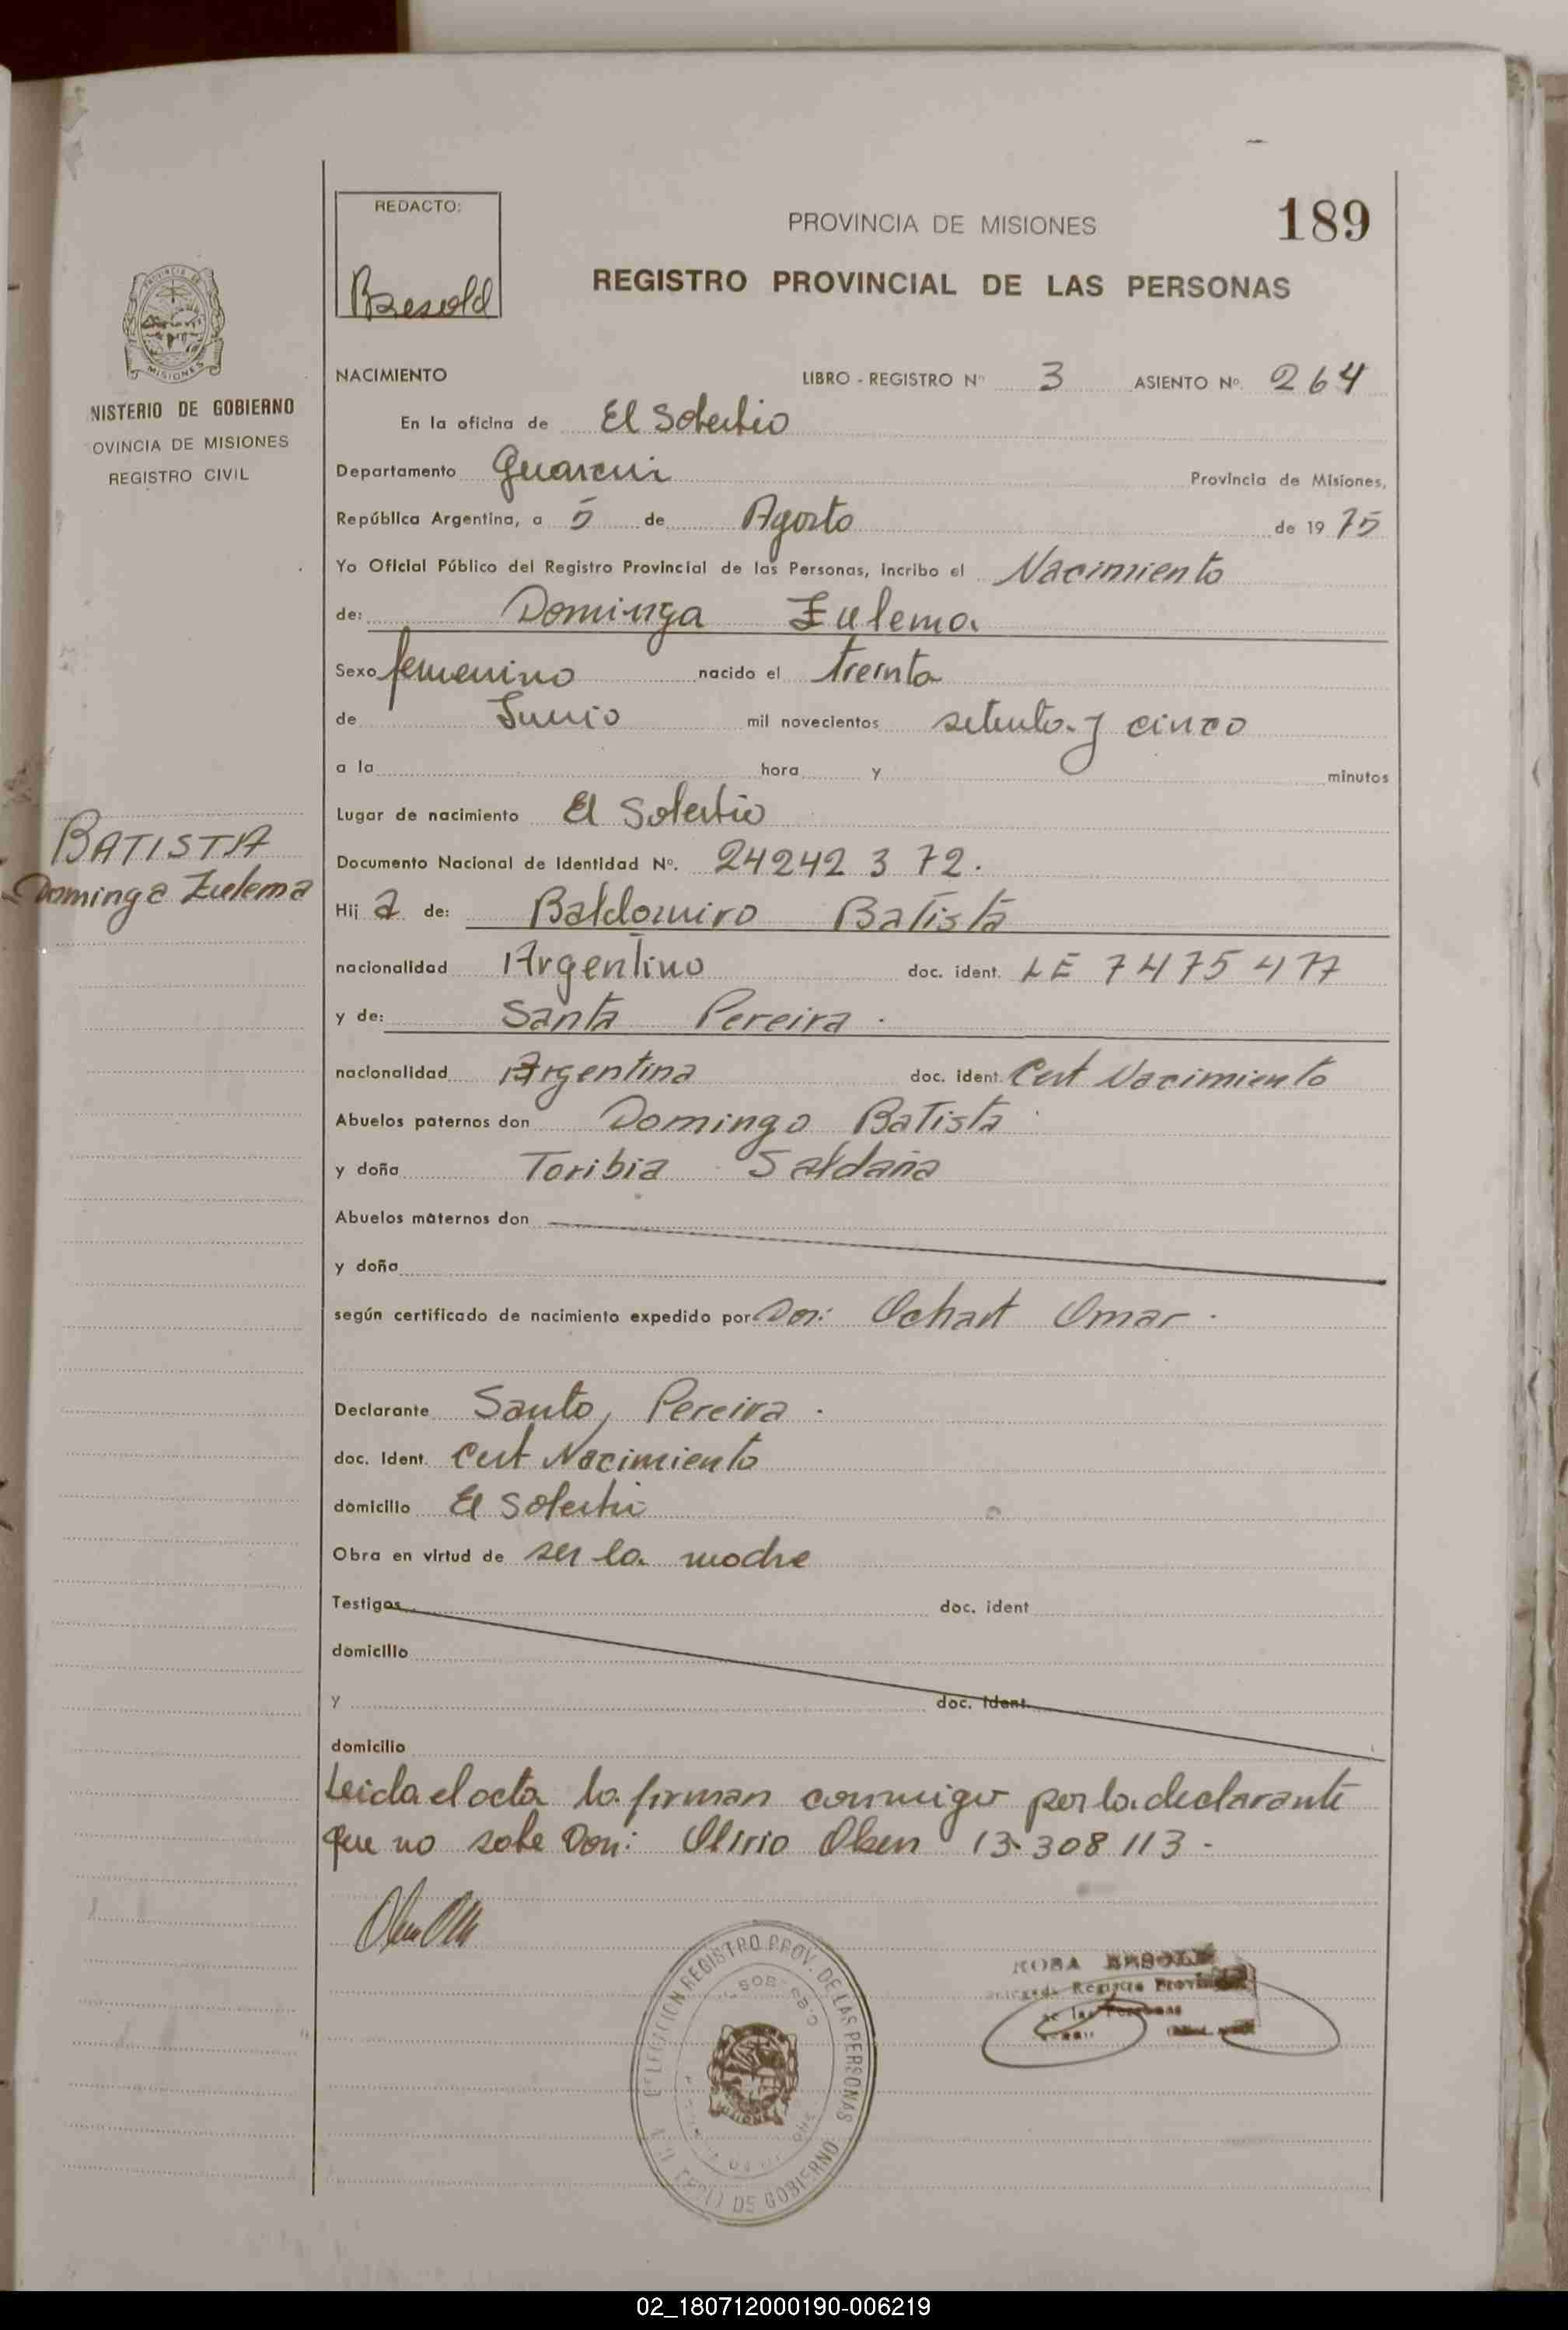 REDACTO:
PROVINCIA DE MISIONES
189
REGISTRO PROVINCIAL DE LAS PERSONAS
MISIONES
NISTERIO DE GOBIERNO
OVINCIA DE MISIONES
REGISTRO CIVIL
NACIMIENTO LIBRO - REGISTRO Nº 3 ASIENTO Nº. 264
En la oficina de El Soberbio
Departamento Guarani Provincia de Misiones,
República Argentina, a 5 de Agosto de 19 75
Yo Oficial Público del Registro Provincial de las Personas, incribo el Nacimiento
de: Dominga Zulema
Sexo femenino nacido el treinta
de Junio mil novecientos setenta y cinco
a la hora y minutos
Lugar de nacimiento El Soberbio
BATISTA
Dominga Zulema
Documento Nacional de Identidad Nº. 24242 3 72.
Hij a de: Baldomiro Batista
nacionalidad Argentino doc. ident. LE 7475477
y de: Santa Pereira.
nacionalidad Argentina doc. ident. Cert Nacimiento
Abuelos paternos don Domingo Batista
y doña Toribia Saldaña
Abuelos maternos don
y doña
según certificado de nacimiento expedido por Don: Ochart Omar.
Declarante Santa Pereira.
doc. ident. Cert Nacimiento
domicilio El Soberbio
Obra en virtud de ser la madre
Testigos doc. ident
domicilio
y doc. ident.
domicilio
Leida el acta la firman conmigo por la declarante
que no sabe Don: Olirio Olsen 13.308 113-
REGISTRO PROV. DE LAS PERSONAS
DE GOBIERNO
ROSA
02_180712000190-006219